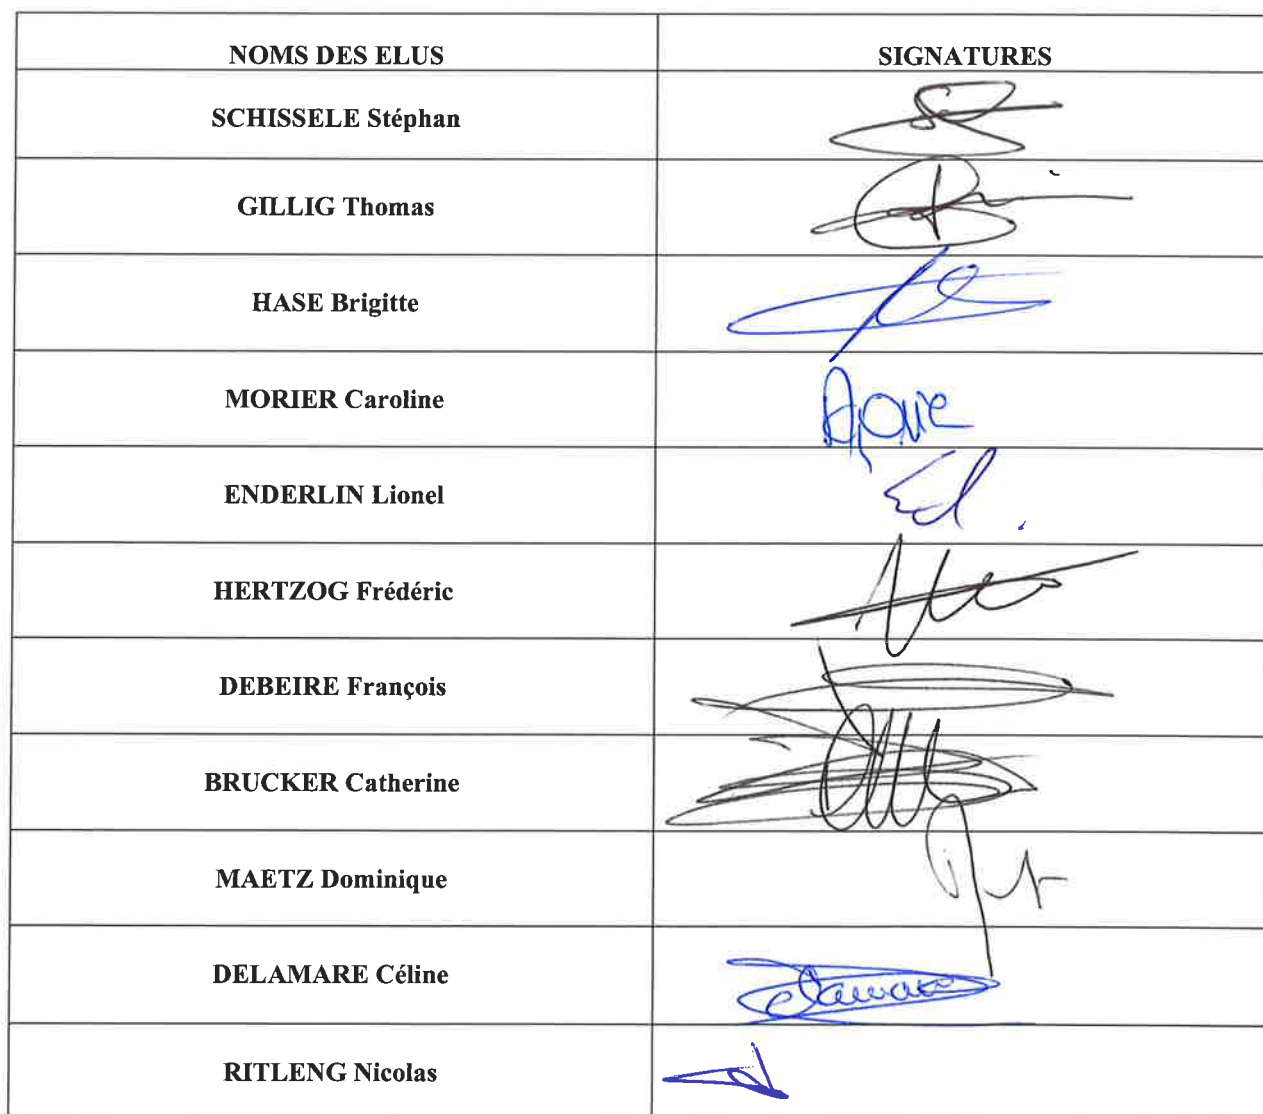 NOMS DES ELUS
SIGNATURES
SCHISSELE Stéphan
GILLIG Thomas
HASE Brigitte
MORIER Caroline
ENDERLIN Lionel
HERTZOG Frédéric
DEBEIRE François
BRUCKER Catherine
MAETZ Dominique
DELAMARE Céline
RITLENG Nicolas